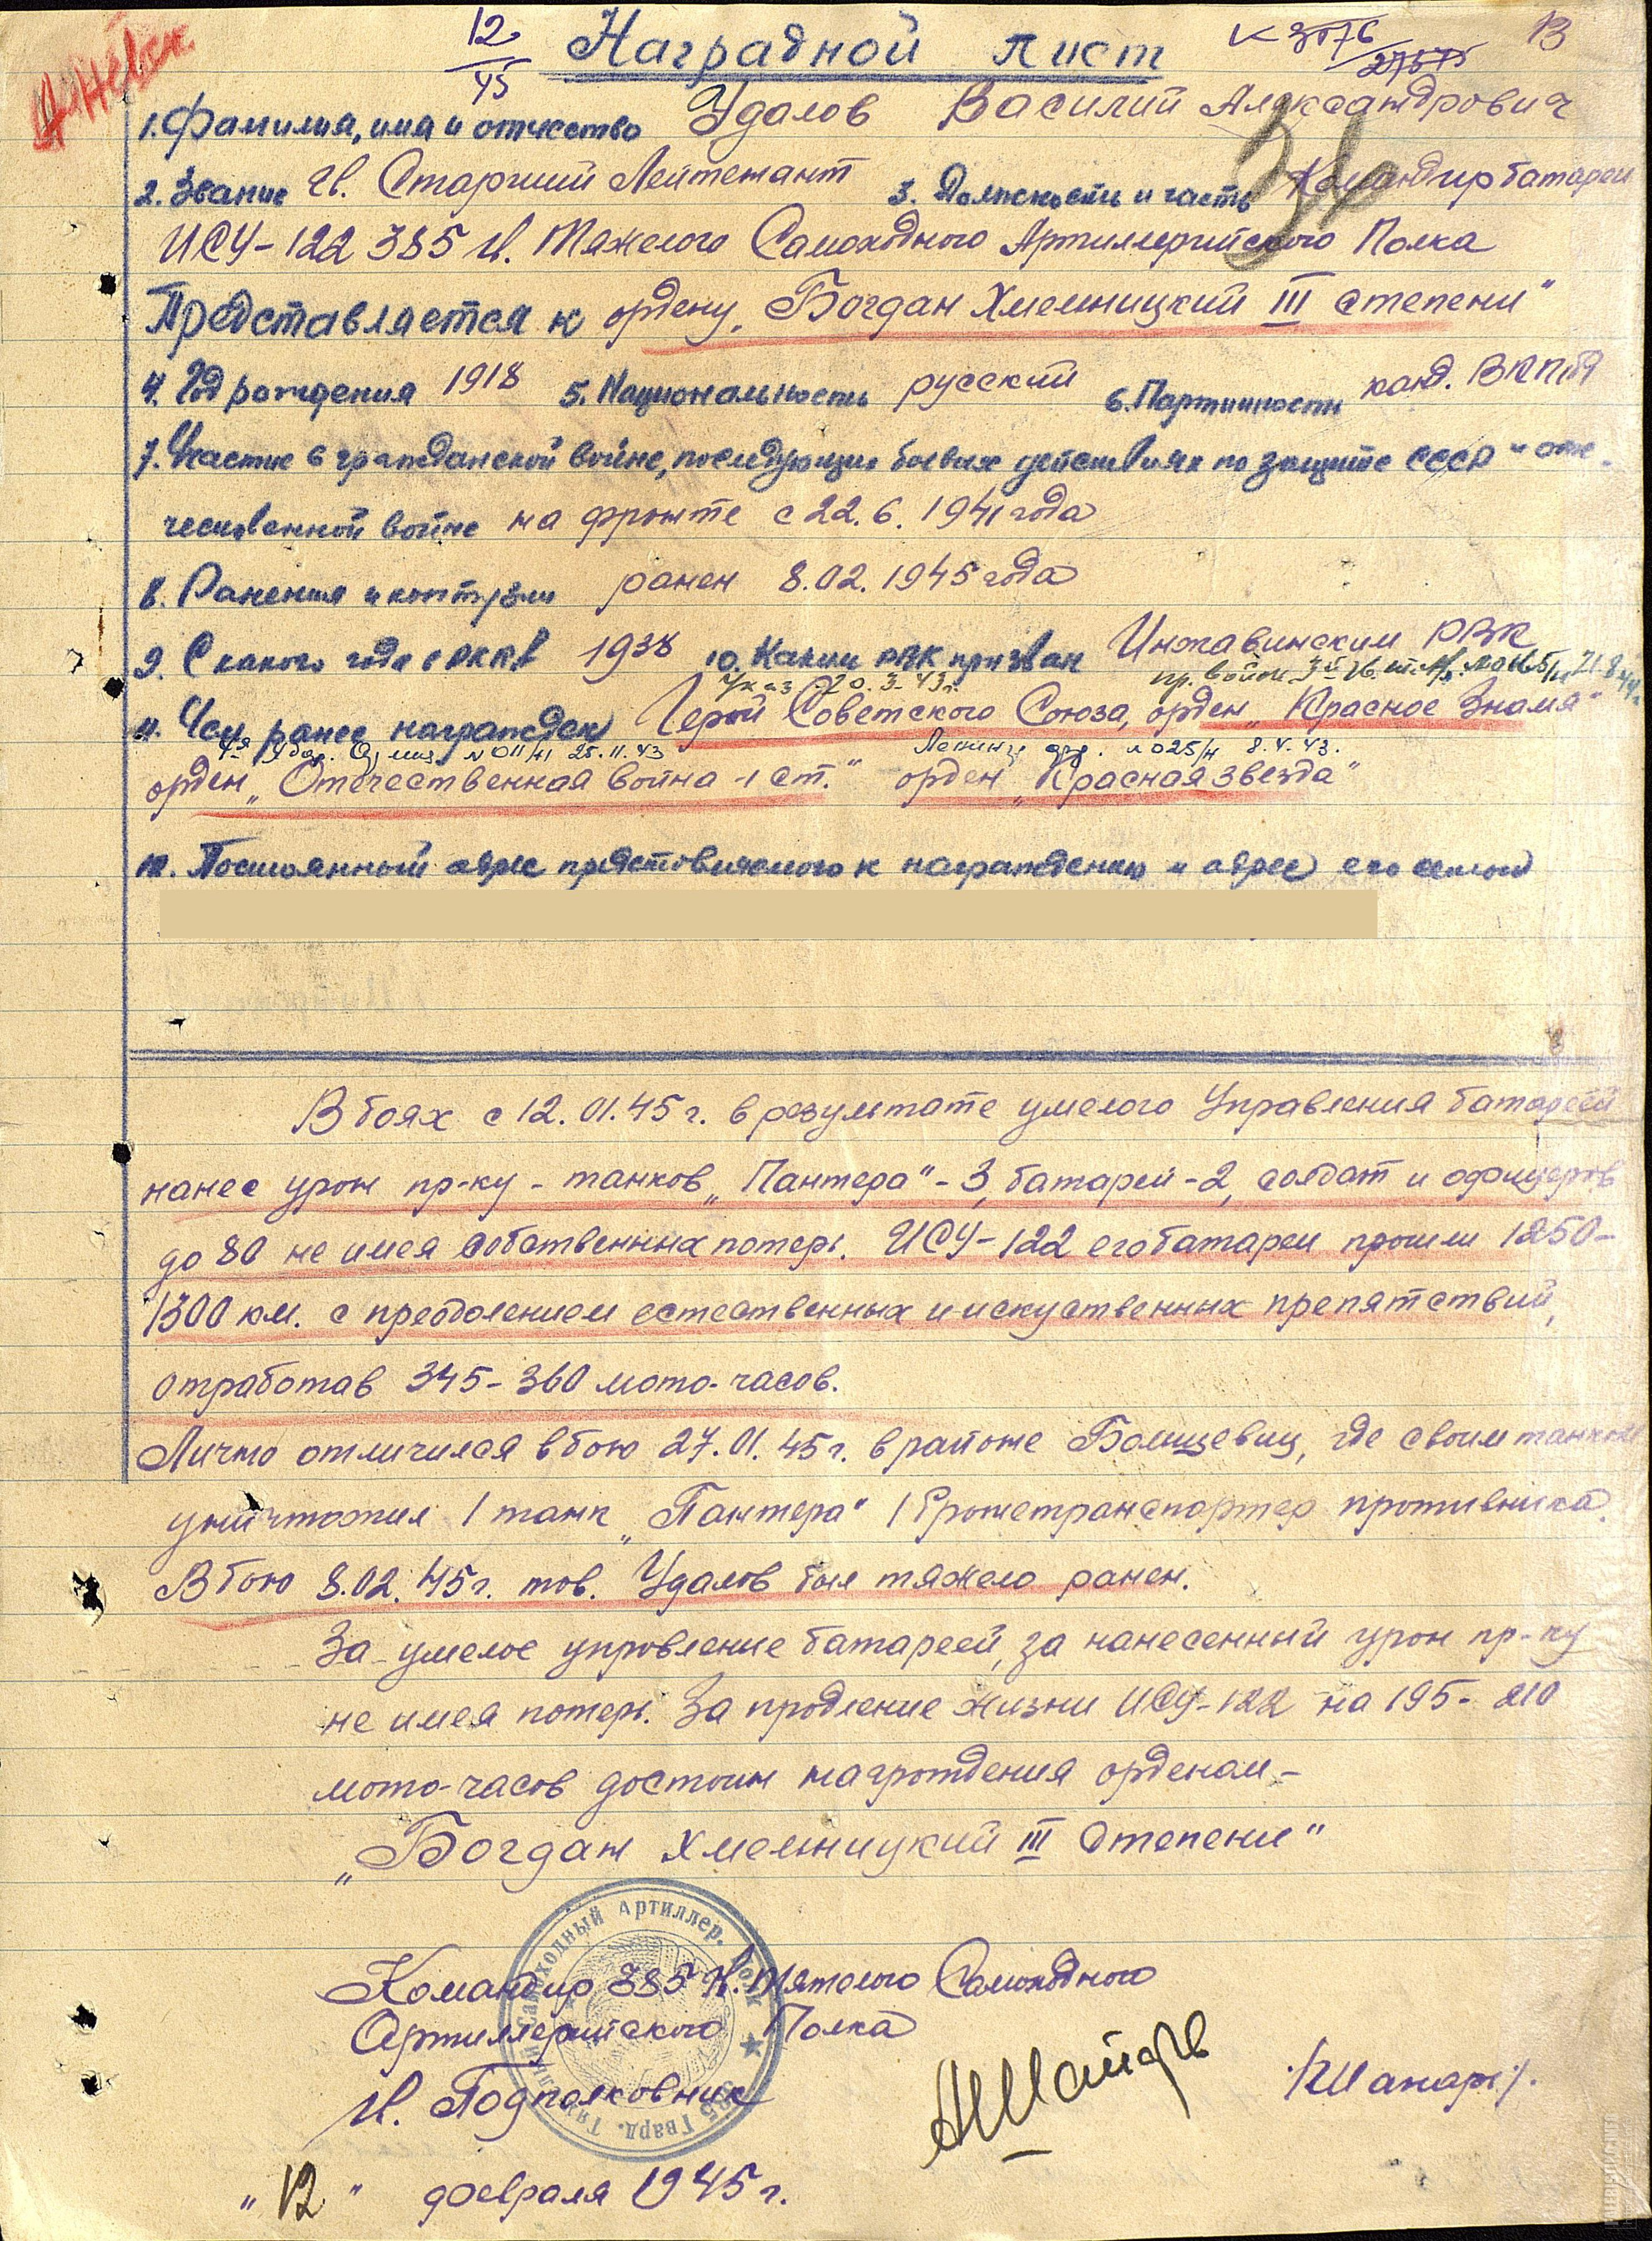 12
45
Наградной лист
К 3076
13
1. Фамилия, имя и отчество Удалов Василий Александрович
2. Звание Гв. Старший Лейтенант 3. Должность и часть Командир батареи
ИСУ-122 385 Гв. Тяжелого Самоходного Артиллерийского Полка
Представляется к ордену „Богдан Хмельницкий III степени"
4. Год рождения 1918 5. Национальность русский 6. Партийность канд. ВКП(б)
7. Участие в гражданской войне, последующих боевых действиях по защите СССР и оте-
чественной войне на фронте с 22.6.1941 года
8. Ранения и контузии ранен 8.02.1945 года
9. С какого года в РККА 1938 10. Каким РВК призван Инжавинским РВК
Указ 20.3.43г.
11. Чем ранее награжден Герой Советского Союза, орден „Красное Знамя"
4я Удар. №011/н 25.11.43 №025/н 8.4.43.
орден „Отечественная война-1 ст." орден „Красная звезда"
12. Постоянный адрес представляемого к награждению и адрес его семьи
В боях с 12.01.45г. в результате умелого Управления батареей
нанес урон пр-ку - танков „Пантера"-3, батарей-2, солдат и офицеров
до 80 не имея собственных потерь. ИСУ-122 его батареи прошли 1250-
1300 км. с преодолением естественных и искуственных препятствий,
отработав 345-360 мото-часов.
Лично отличился в бою 27.01.45г. в районе где своим танком
уничтожил 1 танк „Пантера" 1 бронетранспортер противника.
В бою 8.02.45г. тов. Удалов был тяжело ранен.
За умелое управление батареей, за нанесенный урон пр-ку
не имея потерь. За продление жизни ИСУ-122 на 195-210
мото-часов достоин награждения орденом-
„Богдан Хмельницкий III Степени"
Командир 385 Гв. Тяжелого Самоходного
Артиллерийского Полка
Гв. Подполковник
„12" февраля 1945г.